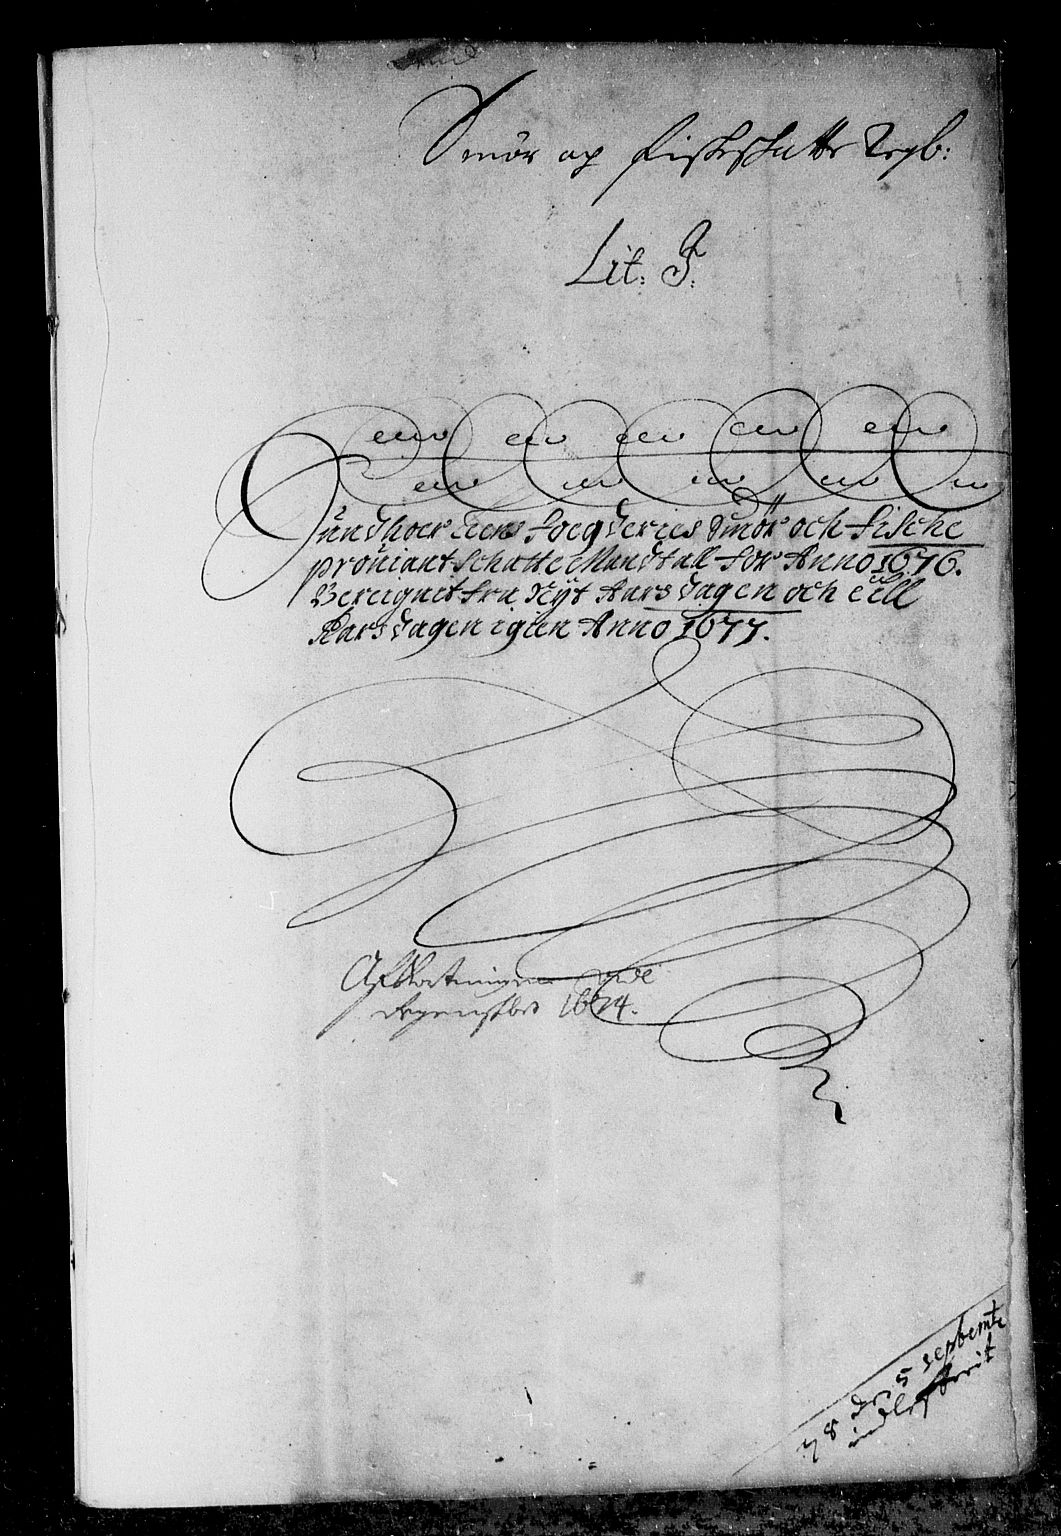 Smör og fiskeskatts Regb:
Lit: F:
Sundhoerlens foegderies Smör och fische
proviant Schatte Mandtall for Anno 1676.
Bereignit fra Nyt Aars dagen och till
Aars dagen igien Anno 1677.
Afkortningen vide
Regenskbet 1674.
78 den 5 septembr
indlefferit